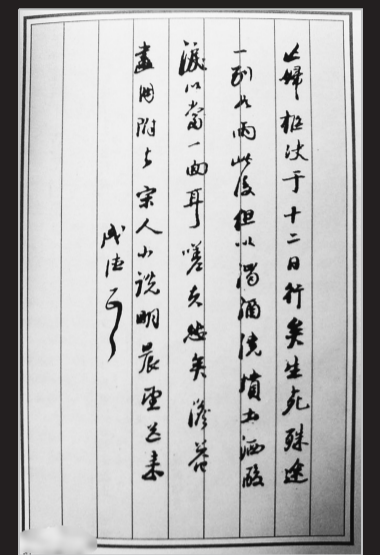 亡婦柩决于十二日行矣生死殊途
一别如雨此後但以濁酒澆墳土洒酸
淚以當一面耳嗟夫悲矣澹菴
畫冊附去宋人小説明晨望送来
成德頓首